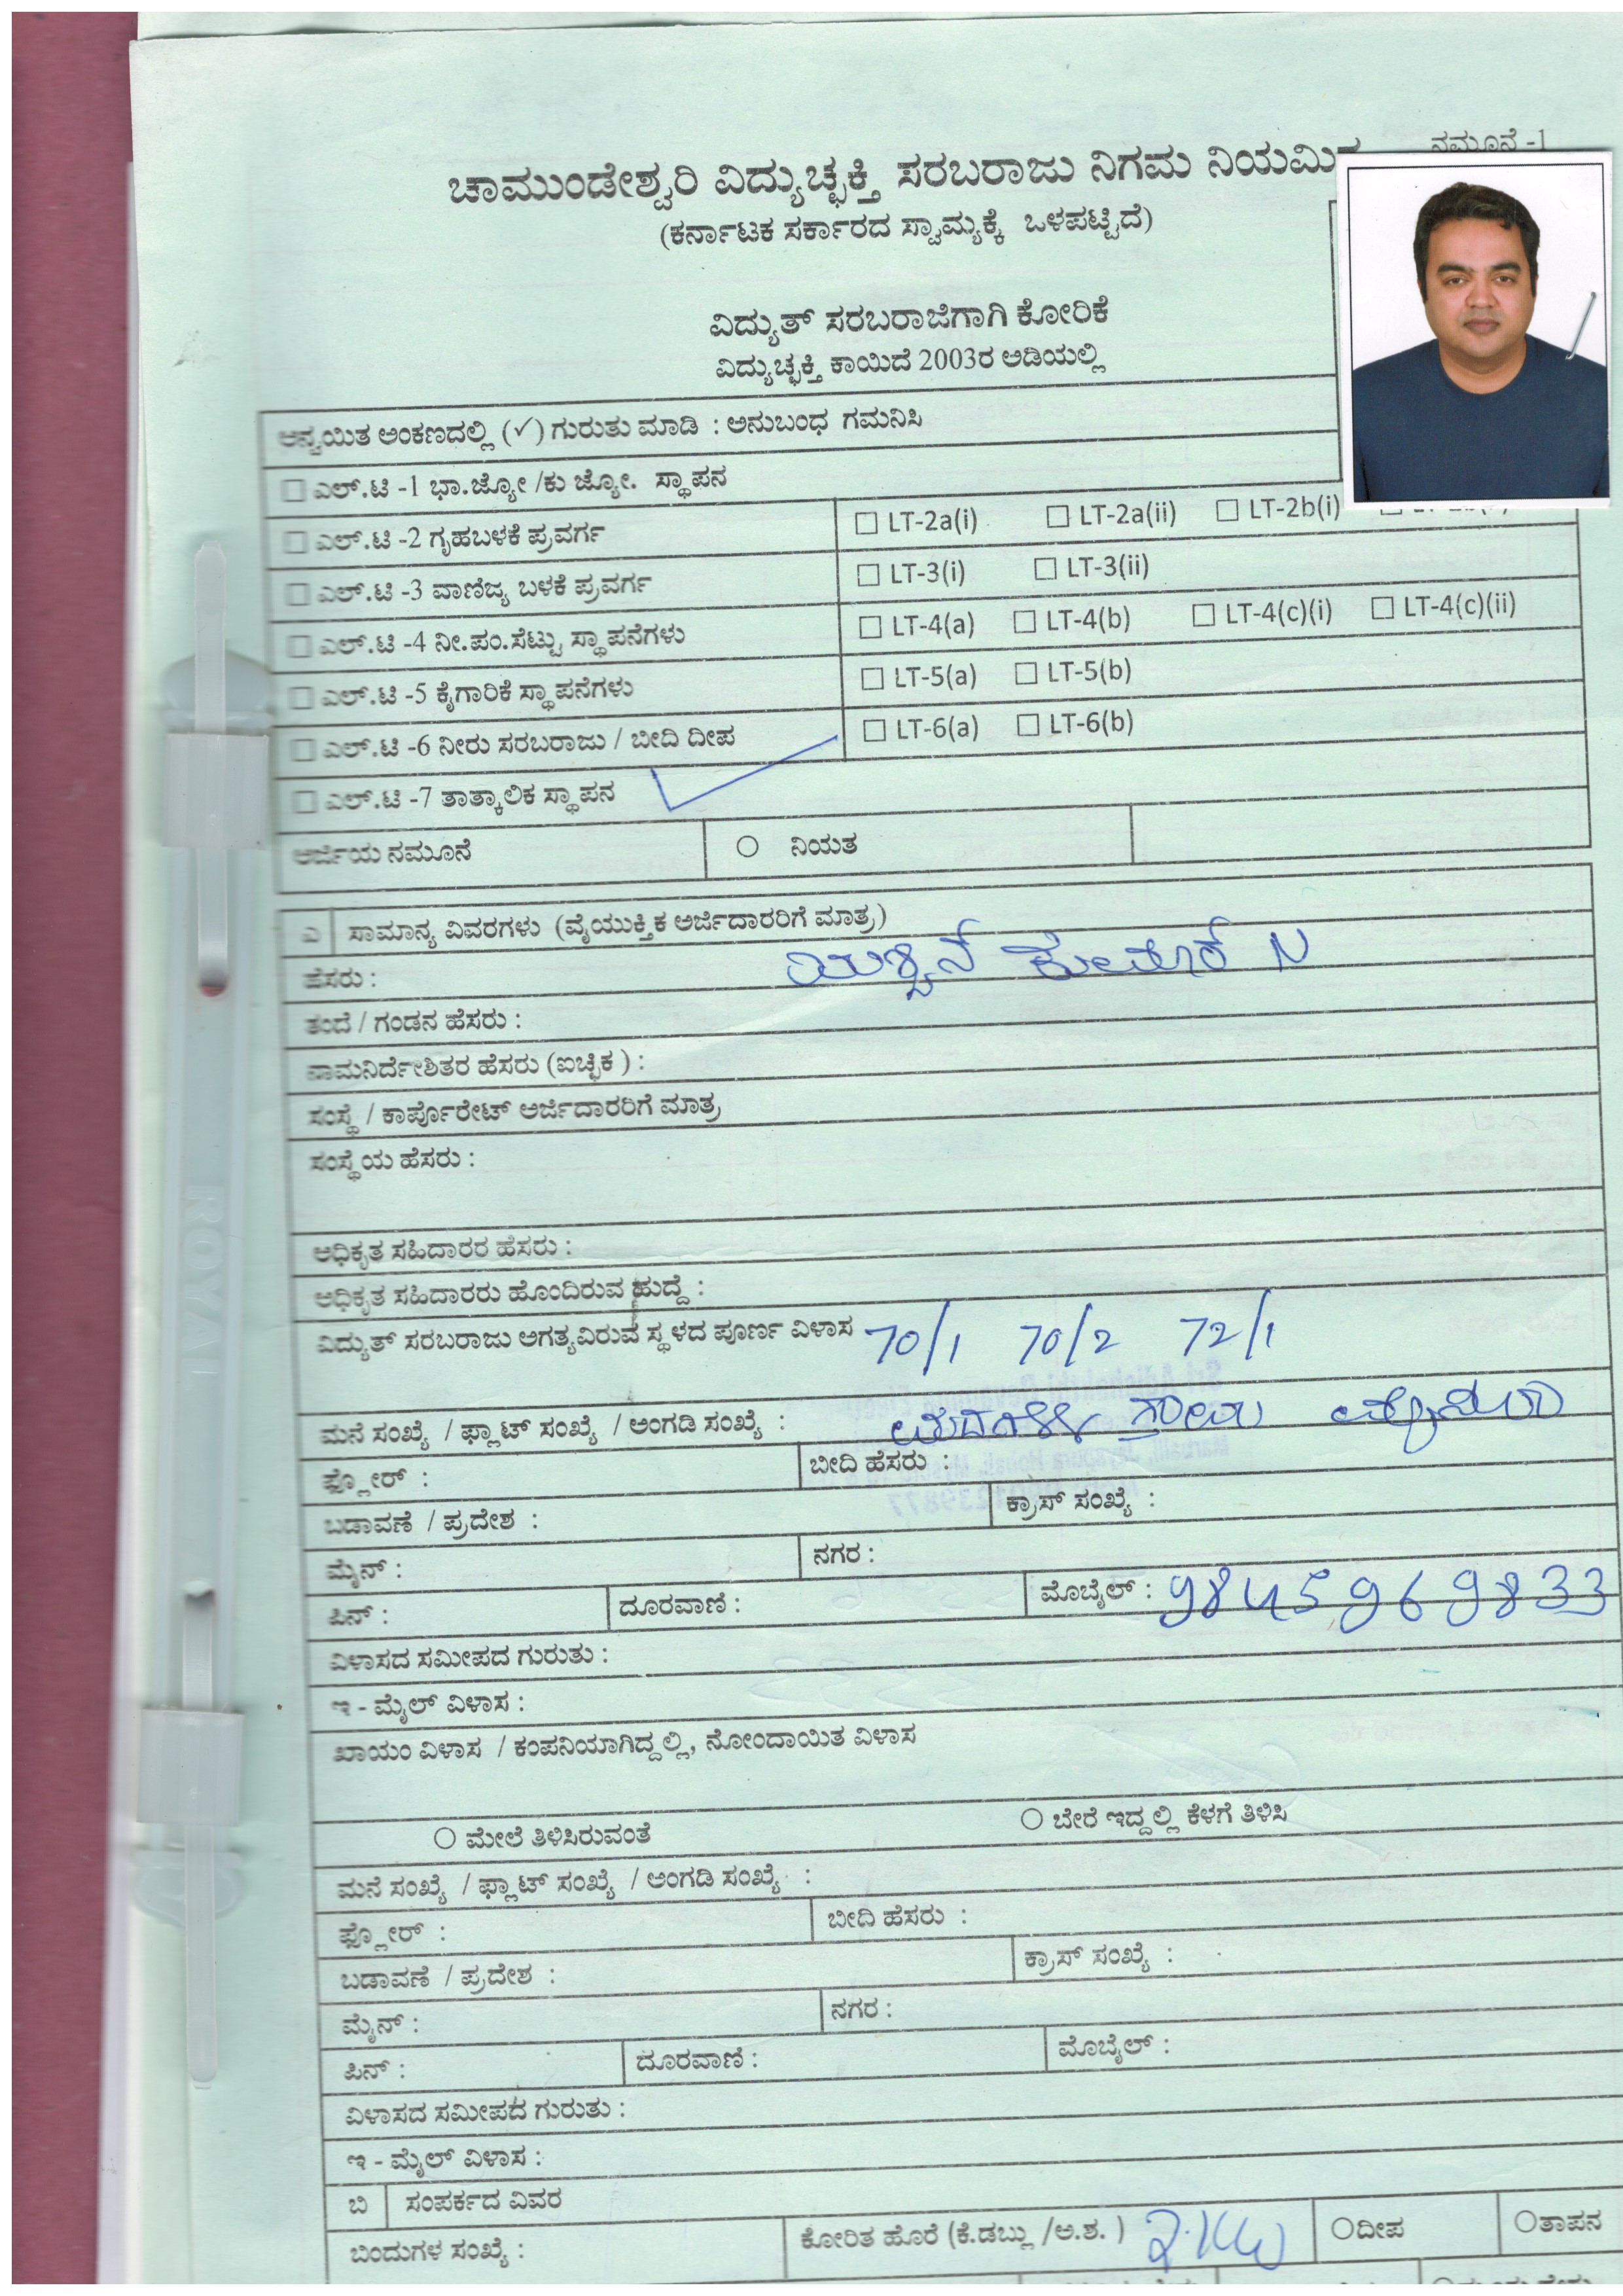 ನಮೂನೆ -1
ಚಾಮುಂಡೇಶ್ವರಿ ವಿದ್ಯುಚ್ಛಕ್ತಿ ಸರಬರಾಜು ನಿಗಮ
(ಕರ್ನಾಟಕ ಸರ್ಕಾರದ ಸ್ವಾಮ್ಯಕ್ಕೆ ಒಳಪಟ್ಟಿದೆ)
ವಿದ್ಯುತ್ ಸರಬರಾಜಿಗಾಗಿ ಕೋರಿಕೆ
ವಿದ್ಯುಚ್ಛಕ್ತಿ ಕಾಯಿದೆ 2003ರ ಅಡಿಯಲ್ಲಿ
ಅನ್ವಯಿತ ಅಂಕಣದಲ್ಲಿ (✓) ಗುರುತು ಮಾಡಿ : ಅನುಬಂಧ ಗಮನಿಸಿ
ಎಲ್.ಟಿ -1 ಭಾ.ಜ್ಯೋ /ಕು ಜ್ಯೋ. ಸ್ಥಾಪನ
ಎಲ್.ಟಿ -2 ಗೃಹಬಳಕೆ ಪ್ರವರ್ಗ LT-2a(i) LT-2a(ii) LT-2b(i)
ಎಲ್.ಟಿ -3 ವಾಣಿಜ್ಯ ಬಳಕೆ ಪ್ರವರ್ಗ LT-3(i) LT-3(ii)
ಎಲ್.ಟಿ -4 ನೀ.ಪಂ.ಸೆಟ್ಟು ಸ್ಥಾಪನೆಗಳು LT-4(a) LT-4(b) LT-4(c)(i) LT-4(c)(ii)
ಎಲ್.ಟಿ -5 ಕೈಗಾರಿಕೆ ಸ್ಥಾಪನೆಗಳು LT-5(a) LT-5(b)
ಎಲ್.ಟಿ -6 ನೀರು ಸರಬರಾಜು / ಬೀದಿ ದೀಪ LT-6(a) LT-6(b)
ಎಲ್.ಟಿ -7 ತಾತ್ಕಾಲಿಕ ಸ್ಥಾಪನ
ಅರ್ಜಿಯ ನಮೂನೆ ನಿಯತ
ಎ ಸಾಮಾನ್ಯ ವಿವರಗಳು (ವೈಯುಕ್ತಿಕ ಅರ್ಜಿದಾರರಿಗೆ ಮಾತ್ರ)
ಹೆಸರು : N
ತಂದೆ / ಗಂಡನ ಹೆಸರು :
ನಾಮನಿರ್ದೇಶಿತರ ಹೆಸರು (ಐಚ್ಛಿಕ ) :
ಸಂಸ್ಥೆ / ಕಾರ್ಪೊರೇಟ್ ಅರ್ಜಿದಾರರಿಗೆ ಮಾತ್ರ
ಸಂಸ್ಥೆಯ ಹೆಸರು :
ಅಧಿಕೃತ ಸಹಿದಾರರ ಹೆಸರು :
ಅಧಿಕೃತ ಸಹಿದಾರರು ಹೊಂದಿರುವ ಹುದ್ದೆ :
ವಿದ್ಯುತ್ ಸರಬರಾಜು ಅಗತ್ಯವಿರುವ ಸ್ಥಳದ ಪೂರ್ಣ ವಿಳಾಸ 70/1 70/2 72/1
ಮನೆ ಸಂಖ್ಯೆ / ಫ್ಲಾಟ್ ಸಂಖ್ಯೆ / ಅಂಗಡಿ ಸಂಖ್ಯೆ :
ಫ್ಲೋರ್ : ಬೀದಿ ಹೆಸರು :
ಬಡಾವಣೆ / ಪ್ರದೇಶ : ಕ್ರಾಸ್ ಸಂಖ್ಯೆ :
ಮೈನ್ : ನಗರ :
ಪಿನ್ : ದೂರವಾಣಿ : ಮೊಬೈಲ್ : 9845969833
ವಿಳಾಸದ ಸಮೀಪದ ಗುರುತು :
ಇ - ಮೈಲ್ ವಿಳಾಸ :
ಖಾಯಂ ವಿಳಾಸ / ಕಂಪನಿಯಾಗಿದ್ದಲ್ಲಿ, ನೋಂದಾಯಿತ ವಿಳಾಸ
ಮೇಲೆ ತಿಳಿಸಿರುವಂತೆ ಬೇರೆ ಇದ್ದಲ್ಲಿ ಕೆಳಗೆ ತಿಳಿಸಿ
ಮನೆ ಸಂಖ್ಯೆ / ಫ್ಲಾಟ್ ಸಂಖ್ಯೆ / ಅಂಗಡಿ ಸಂಖ್ಯೆ :
ಫ್ಲೋರ್ : ಬೀದಿ ಹೆಸರು :
ಬಡಾವಣೆ / ಪ್ರದೇಶ : ಕ್ರಾಸ್ ಸಂಖ್ಯೆ :
ಮೈನ್ : ನಗರ :
ಪಿನ್ : ದೂರವಾಣಿ : ಮೊಬೈಲ್ :
ವಿಳಾಸದ ಸಮೀಪದ ಗುರುತು :
ಇ - ಮೈಲ್ ವಿಳಾಸ :
ಬಿ ಸಂಪರ್ಕದ ವಿವರ
ಬಿಂದುಗಳ ಸಂಖ್ಯೆ : ಕೋರಿತ ಹೊರೆ (ಕೆ.ಡಬ್ಲು /ಅ.ಶ. ) ದೀಪ ತಾಪನ
ROYAL